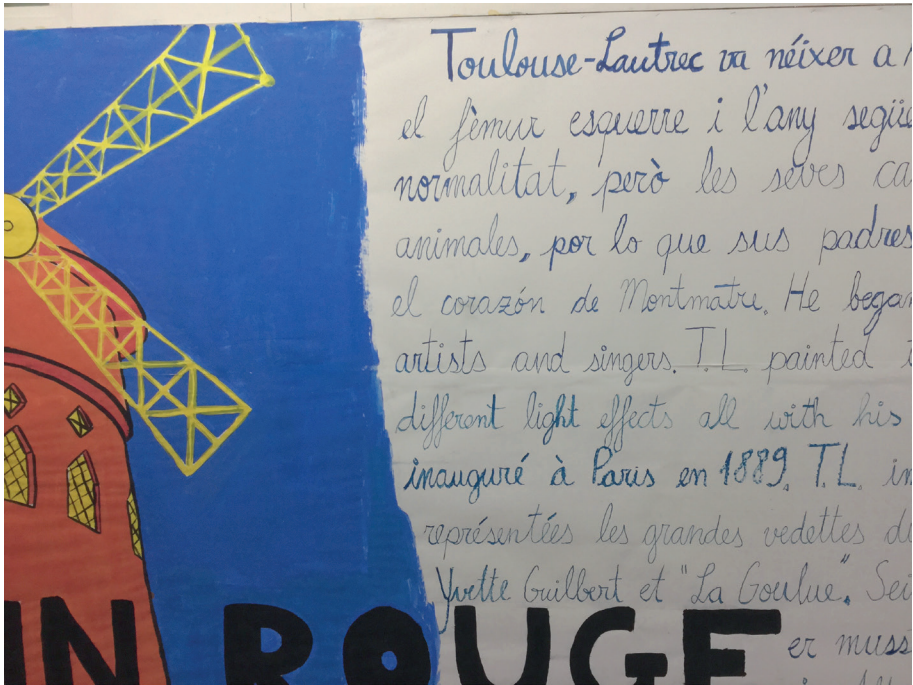 Toulouse-Lautrec va néixer a
el fèmur esquerre i l'any següe
normalitat, però les seves ca
animales, por lo que sus padres
el corazón de Montmatre. He began
artists and singers. T.L. painted t
different light effects all with his
inauguré à Paris en 1889. T.L. in
représentées les grandes vedettes d
Yvette Guilbert et "La Goulue". Sei
IN ROUGE
er muss